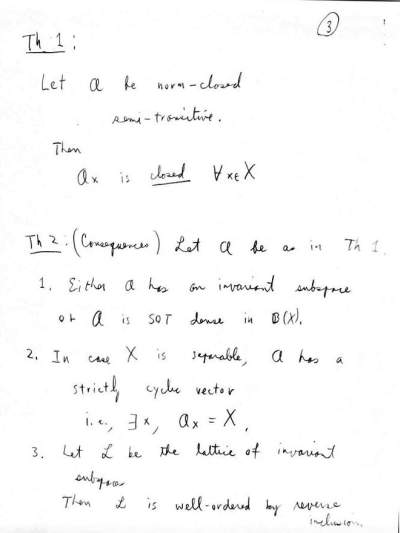 ③
Th 1:
Let 𝒜 be norm-closed
semi-transitive.
Then
𝒜x is closed ∀x∈X
Th 2: (Consequences) Let 𝒜 be as in Th 1.
1. Either 𝒜 has an invariant subspace
or 𝒜 is SOT dense in 𝔅(X).
2. In case X is separable, 𝒜 has a
strictly cyclic vector
i.e., ∃x, 𝒜x = X.
3. Let ℒ be the lattice of invariant
subspaces
Then ℒ is well-ordered by reverse
inclusion.